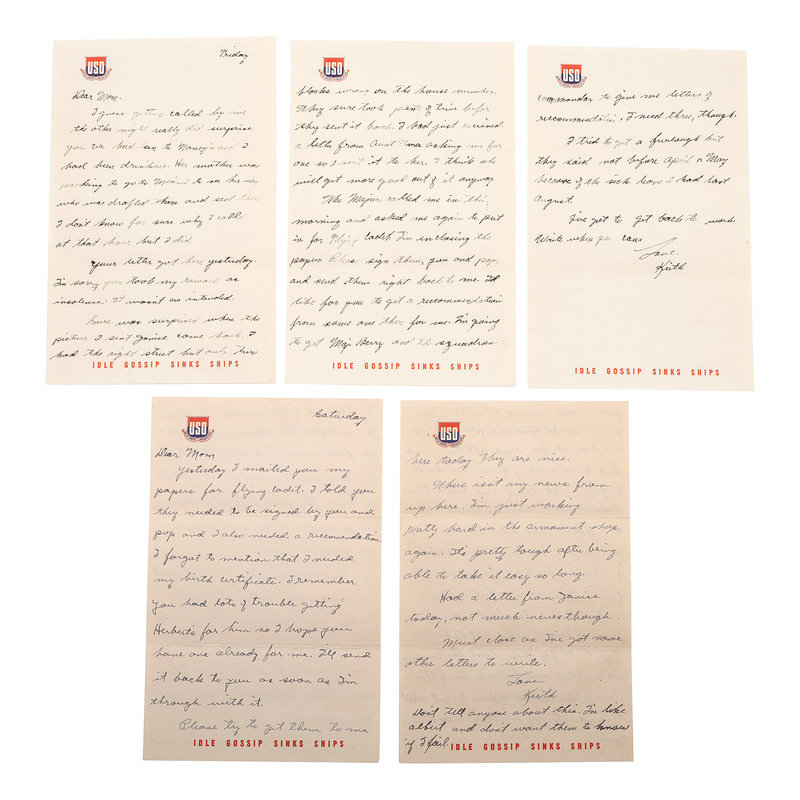 USO
Friday
Dear Mom.
I guess getting called by me
the other night really did surprise
you. We had been to Nancy's and I
had been drinking. Her mother was
packing to go to Miami to see her son
who was drafted there and sent there
I don't know for sure why I call
at that hour but I did.
Your letter got here yesterday.
I'm sorry you took my remark as
insolence. It wasn't so intended.
Sure was surprised when the
picture I sent Janice came back. I
had the right street but only three
IDLE GOSSIP SINKS SHIPS
USO
blocks wrong on the house number.
They sure took plenty of time before
they sent it back. I had just received
a letter from Aunt asking me for
one so I sent it to her. I think she
will get more good out of it anyway.
The Major called me in this
morning and asked me again to put
in for Flying Cadet. I'm inclosing the
papers. Please sign them, you and pop,
and send them right back to me. I'd
like for you to get a recommendation
from some one there for me. I'm going
to get Maj Berry and the squadron
IDLE GOSSIP SINKS SHIPS
USO
commander to give me letters of
recommentation. I need three, though.
I tried to get a furlough but
they said not before April or May
because of the sick leave I had last
August.
I've got to get back to work.
Write when you can.
Love
Keith
IDLE GOSSIP SINKS SHIPS
USO
Saturday
Dear Mom
Yesterday I mailed you my
papers for flying cadit. I told you
they needed to be signed by you and
pop and I also needed a reccomendation.
I forgot to mention that I needed
my birth certificate. I remember
you had lots of trouble getting
Herberts for him so I hope you
have one already for me. I'll send
it back to you as soon as I'm
through with it.
Please try to get them to me
IDLE GOSSIP SINKS SHIPS
USO
here today. They are nice.
There isn't any news from
up here. I'm just working
pretty hard in the armament shop
again. It's pretty tough after being
able to take it easy so long.
Had a letter from Janice
today, not much news though.
Must close as I've got some
other letters to write.
Love
Keith
Dont tell anyone about this. I'm like
albert and don't want them to know
if I fail.
IDLE GOSSIP SINKS SHIPS